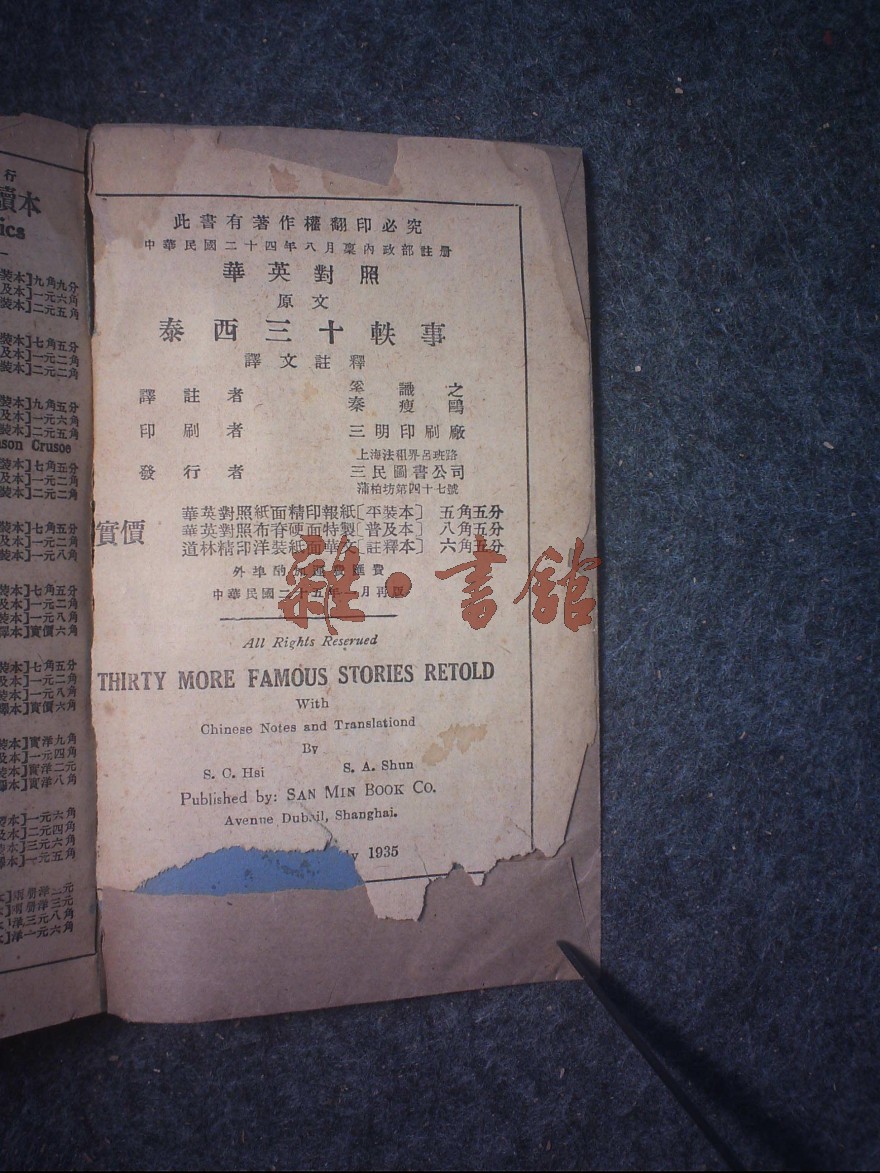 行
讀本
ics
裝本]九角九分
及本]一元六角
裝本]二元五角
裝本]七角五分
及本]一元二角
裝本]二元二角
裝本]九角五分
及本]一元六角
裝本]二元五角
son Crusoe
裝本]七角五分
及本]一元二角
裝本]二元二角
裝本]七角五分
及本]一元二角
裝本]一元八角
裝本]七角五分
及本]一元二角
裝本]一元八角
釋本]實價六角
裝本]七角五分
及本]一元二角
裝本]一元八角
釋本]實價六角
裝本]實洋九角
及本]一元四角
裝本]實洋二元
釋本]實洋八角
本]一元六角
及本]二元四角
裝本]三元六角
釋本]一元五角
本]兩册洋二元
本]兩册洋三元
本]洋三元八角
本]洋一元六角
此書有著作權翻印必究
中華民國二十四年八月稟內政部註册
華英對照
原文
泰西三十軼事
譯文註釋
譯註者
奚識之
秦瘦鷗
印刷者 三明印刷廠
上海法租界呂班路
發行者 三民圖書公司
蒲柏坊第四十七號
實價
華英對照紙面精印報紙[平裝本] 五角五分
華英對照布脊硬面特製[普及本] 八角五分
道林精印洋裝紙面華文[註釋本] 六角五分
外埠酌加 費匯費
中華民國二十五年一月再版
雜·書館
All Rights Reserued
THIRTY MORE FAMOUS STORIES RETOLD
With
Chinese Notes and Translationd
By
S. C. Hsi S. A. Shun
Published by: SAN MIN BOOK CO.
Avenue Dubail, Shanghai.
y 1935